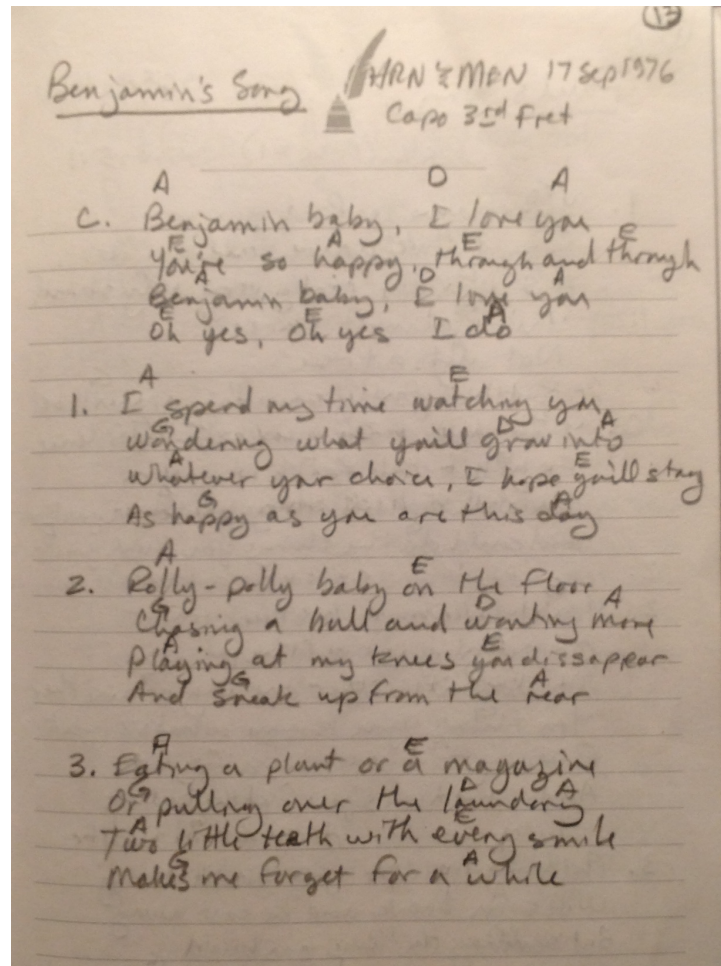 13
Benjamin's Song HRN & MEN 17 Sep 1976
Capo 3rd Fret
A D A
C. Benjamin baby, I love you
E A E E
You're so happy, through and through
A D A
Benjamin baby, I love you
E E A
Oh yes, Oh yes I do
A E
1. I spend my time watching you
G D A
wondering what you'll grow into
A E
Whatever your choice, I hope you'll stay
G A
As happy as you are this day
A E
2. Rolly-polly baby on the floor
G D A
Chasing a ball and wanting more
A E
Playing at my knees you dissappear
G A
And sneak up from the rear
A E
3. Eating a plant or a magazine
G D A
Or pulling over the laundery
A E
Two little teath with every smile
G A
Makes me forget for a while